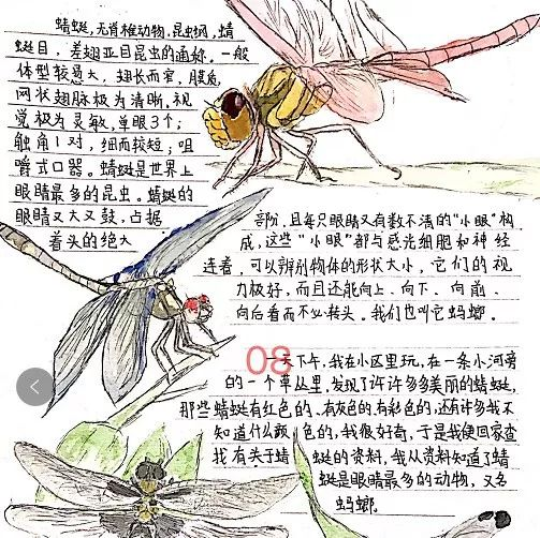 蜻蜓,无脊椎动物,昆虫纲,蜻
蜓目,差翅亚目昆虫的通称。一般
体型较大,翅长而窄,膜质,
网状翅脉极为清晰。视
觉极为灵敏,单眼3个;
触角1对,细而较短;咀
嚼式口器。蜻蜓是世界上
眼睛最多的昆虫。蜻蜓的
眼睛又大又鼓,占据
着头的绝大
部分,且每只眼睛又有数不清的“小眼”构
成,这些“小眼”都与感光细胞和神经
连着,可以辨别物体的形状大小,它们的视
力极好,而且还能向上、向下、向前、
向后看而不必转头。我们也叫它蚂螂。
08
一天下午,我在小区里玩,在一条小河旁
的一个草丛里,发现了许许多多美丽的蜻蜓,
那些蜻蜓有红色的、有灰色的、有彩色的,还有许多我不
知道什么颜色的,我很好奇,于是我便回家查
找有关于蜻蜓的资料,我从资料知道了蜻
蜓是眼睛最多的动物,又名
蚂螂。